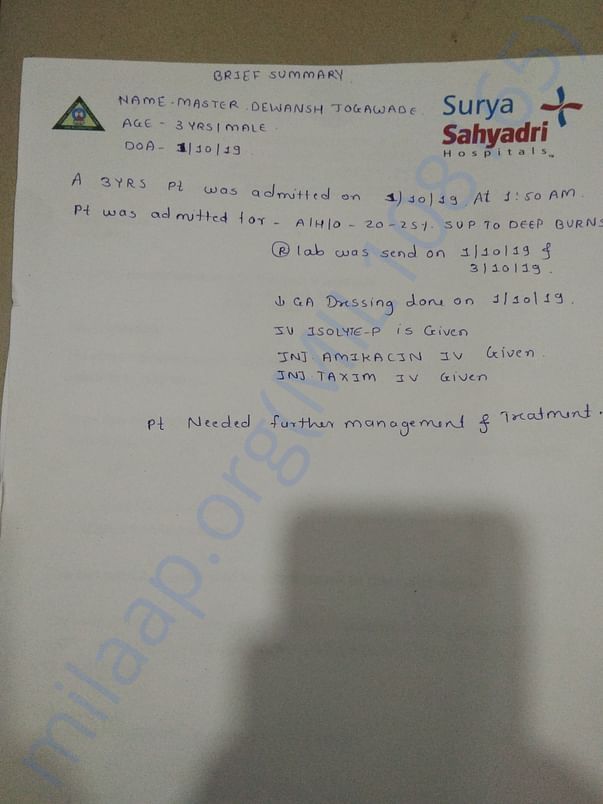 BRIEF SUMMARY.
NAME - MASTER. DEWANSH JOGAWADE.
AGE - 3 YRS / MALE.
DOA - 1/10/19.
Surya
Sahyadri
Hospitals
A 3YRS Pt was admitted on 1/10/19. At 1:50 AM.
Pt was admitted for - A/H/O - 20-25%. SUP TO DEEP BURNS
Ⓡ lab was send on 1/10/19 &
3/10/19.
↓ GA Dressing done on 1/10/19.
IV ISOLYTE-P is Given
INJ. AMIKACIN IV Given.
INJ. TAXIM IV Given
Pt Needed further management & Treatment.
milaap.org(MIL 108
65)